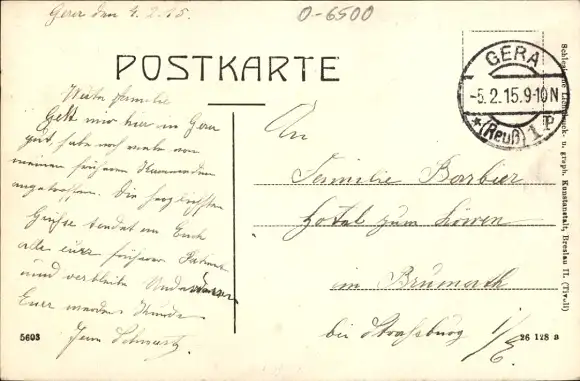 Gera den 4.2.15.
0-6500
POSTKARTE
GERA
-5.2.15.9-10N
*(Reuß) 1P
Werte Familie
Geht mir hier in Gera
gut, habe noch mehr von
meinen früheren Kameraden
angetroffen. Die herzlichsten
Grüsse sendet an Euch
alle euer früherer
und verbleibe
Euer werder
Jean Schwartz
An
Familie Barbier
Hotel zum Löwen
in Brumath
bei Strassburg i/E
5603
26 128 a
Schlesische Lichtdruck- u. graph. Kunstanstalt, Breslau II. (Tivoli)